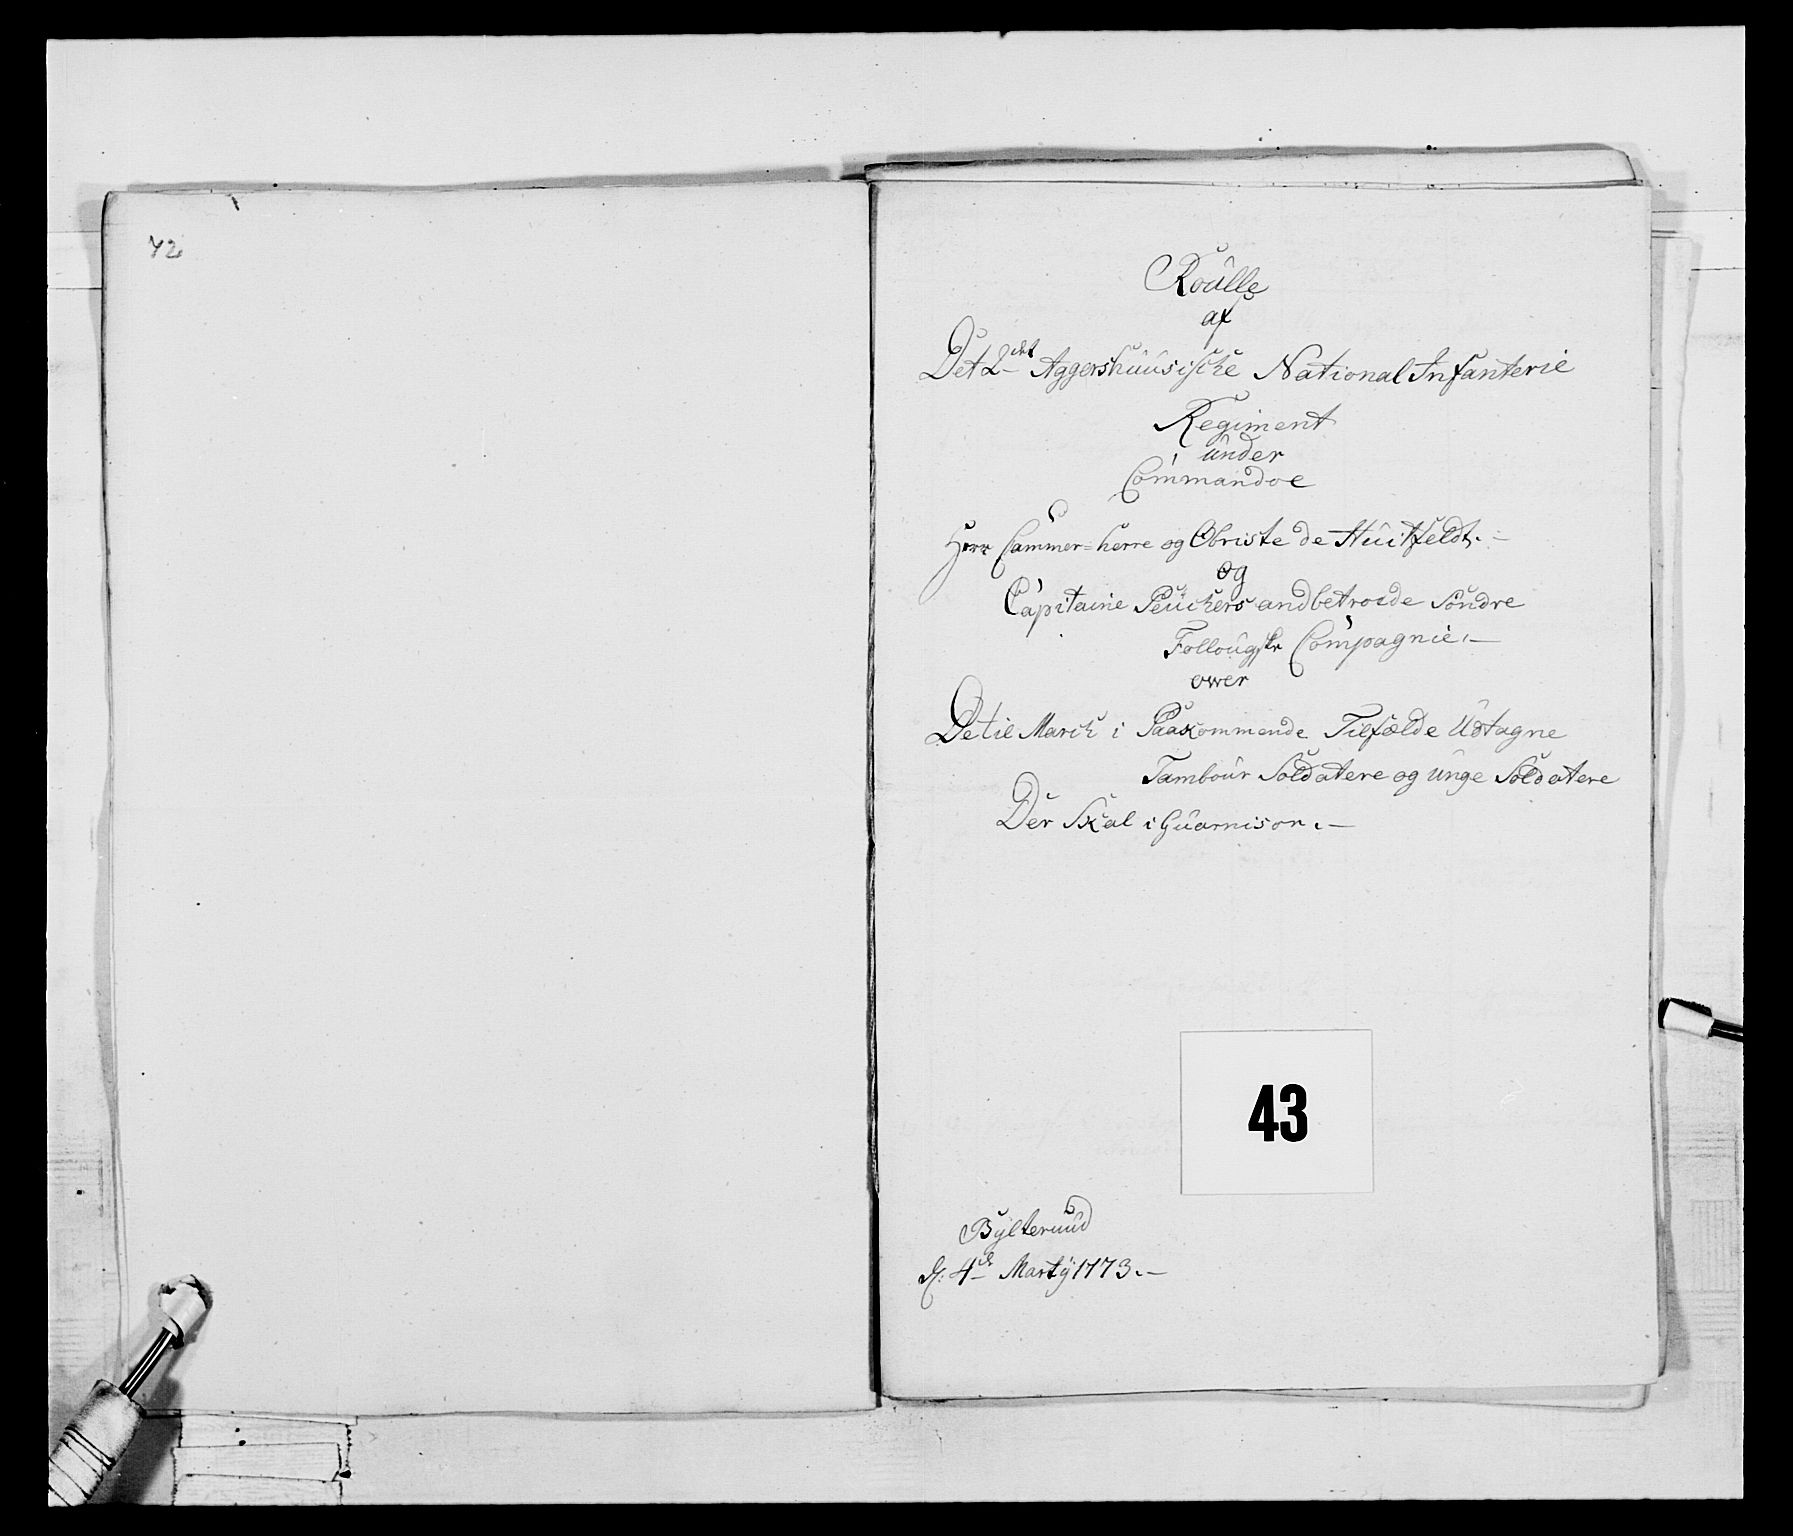 42
Roulle
af
Det 2det Aggershuusische National Infanterie
Regiment
under
Commandoe
Herr Cammer=herre og Obriste de Huitfeldt.
og
Capitaine Peuchers andbetroede Söndre
Follougske Compagnie.
over
De til March i Paakommende Tilfælde Udtagne
Tambour Soldatere og unge Soldatere
Der Skal i Guarnison.
43
Bylteruud
d: 4de Marty 1773.